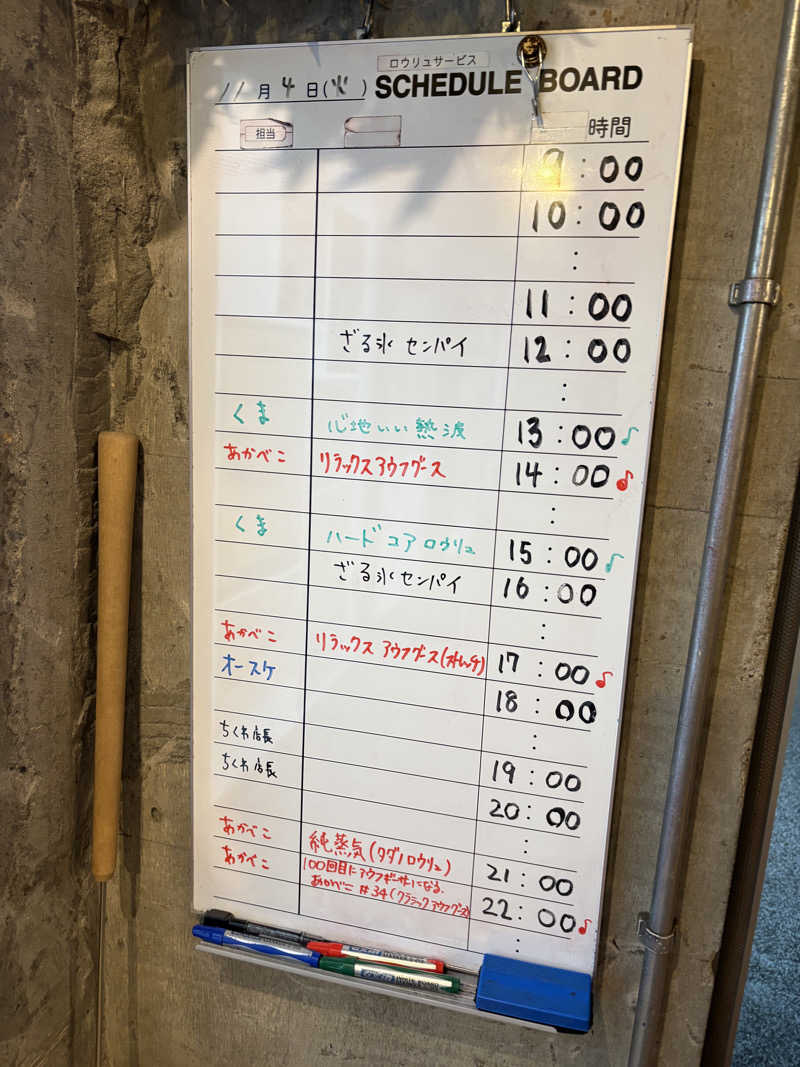 ロウリュサービス
11月4日(火) SCHEDULE BOARD
担当 時間
9:00
10:00
:
11:00
ざる氷センパイ 12:00
:
くま 心地いい熱波 13:00♪
あかべこ リラックスアウフグース 14:00♪
:
くま ハードコアロウリュ 15:00♪
ざる氷センパイ 16:00
:
あかべこ リラックスアウフグース(ストレッチ) 17:00♪
オースケ 18:00
:
ちくわ店長 19:00
ちくわ店長 20:00
:
あかべこ 純蒸気(タダノロウリュ) 21:00
あかべこ 100回目にアウフギーサーになる.
あかべこ #34(クラシックアウフグース) 22:00♪
: